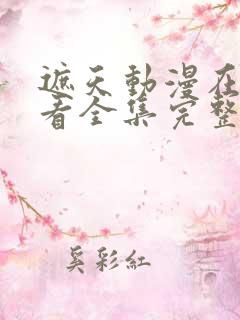 遮天動漫在
看全集完整
奚彩紅